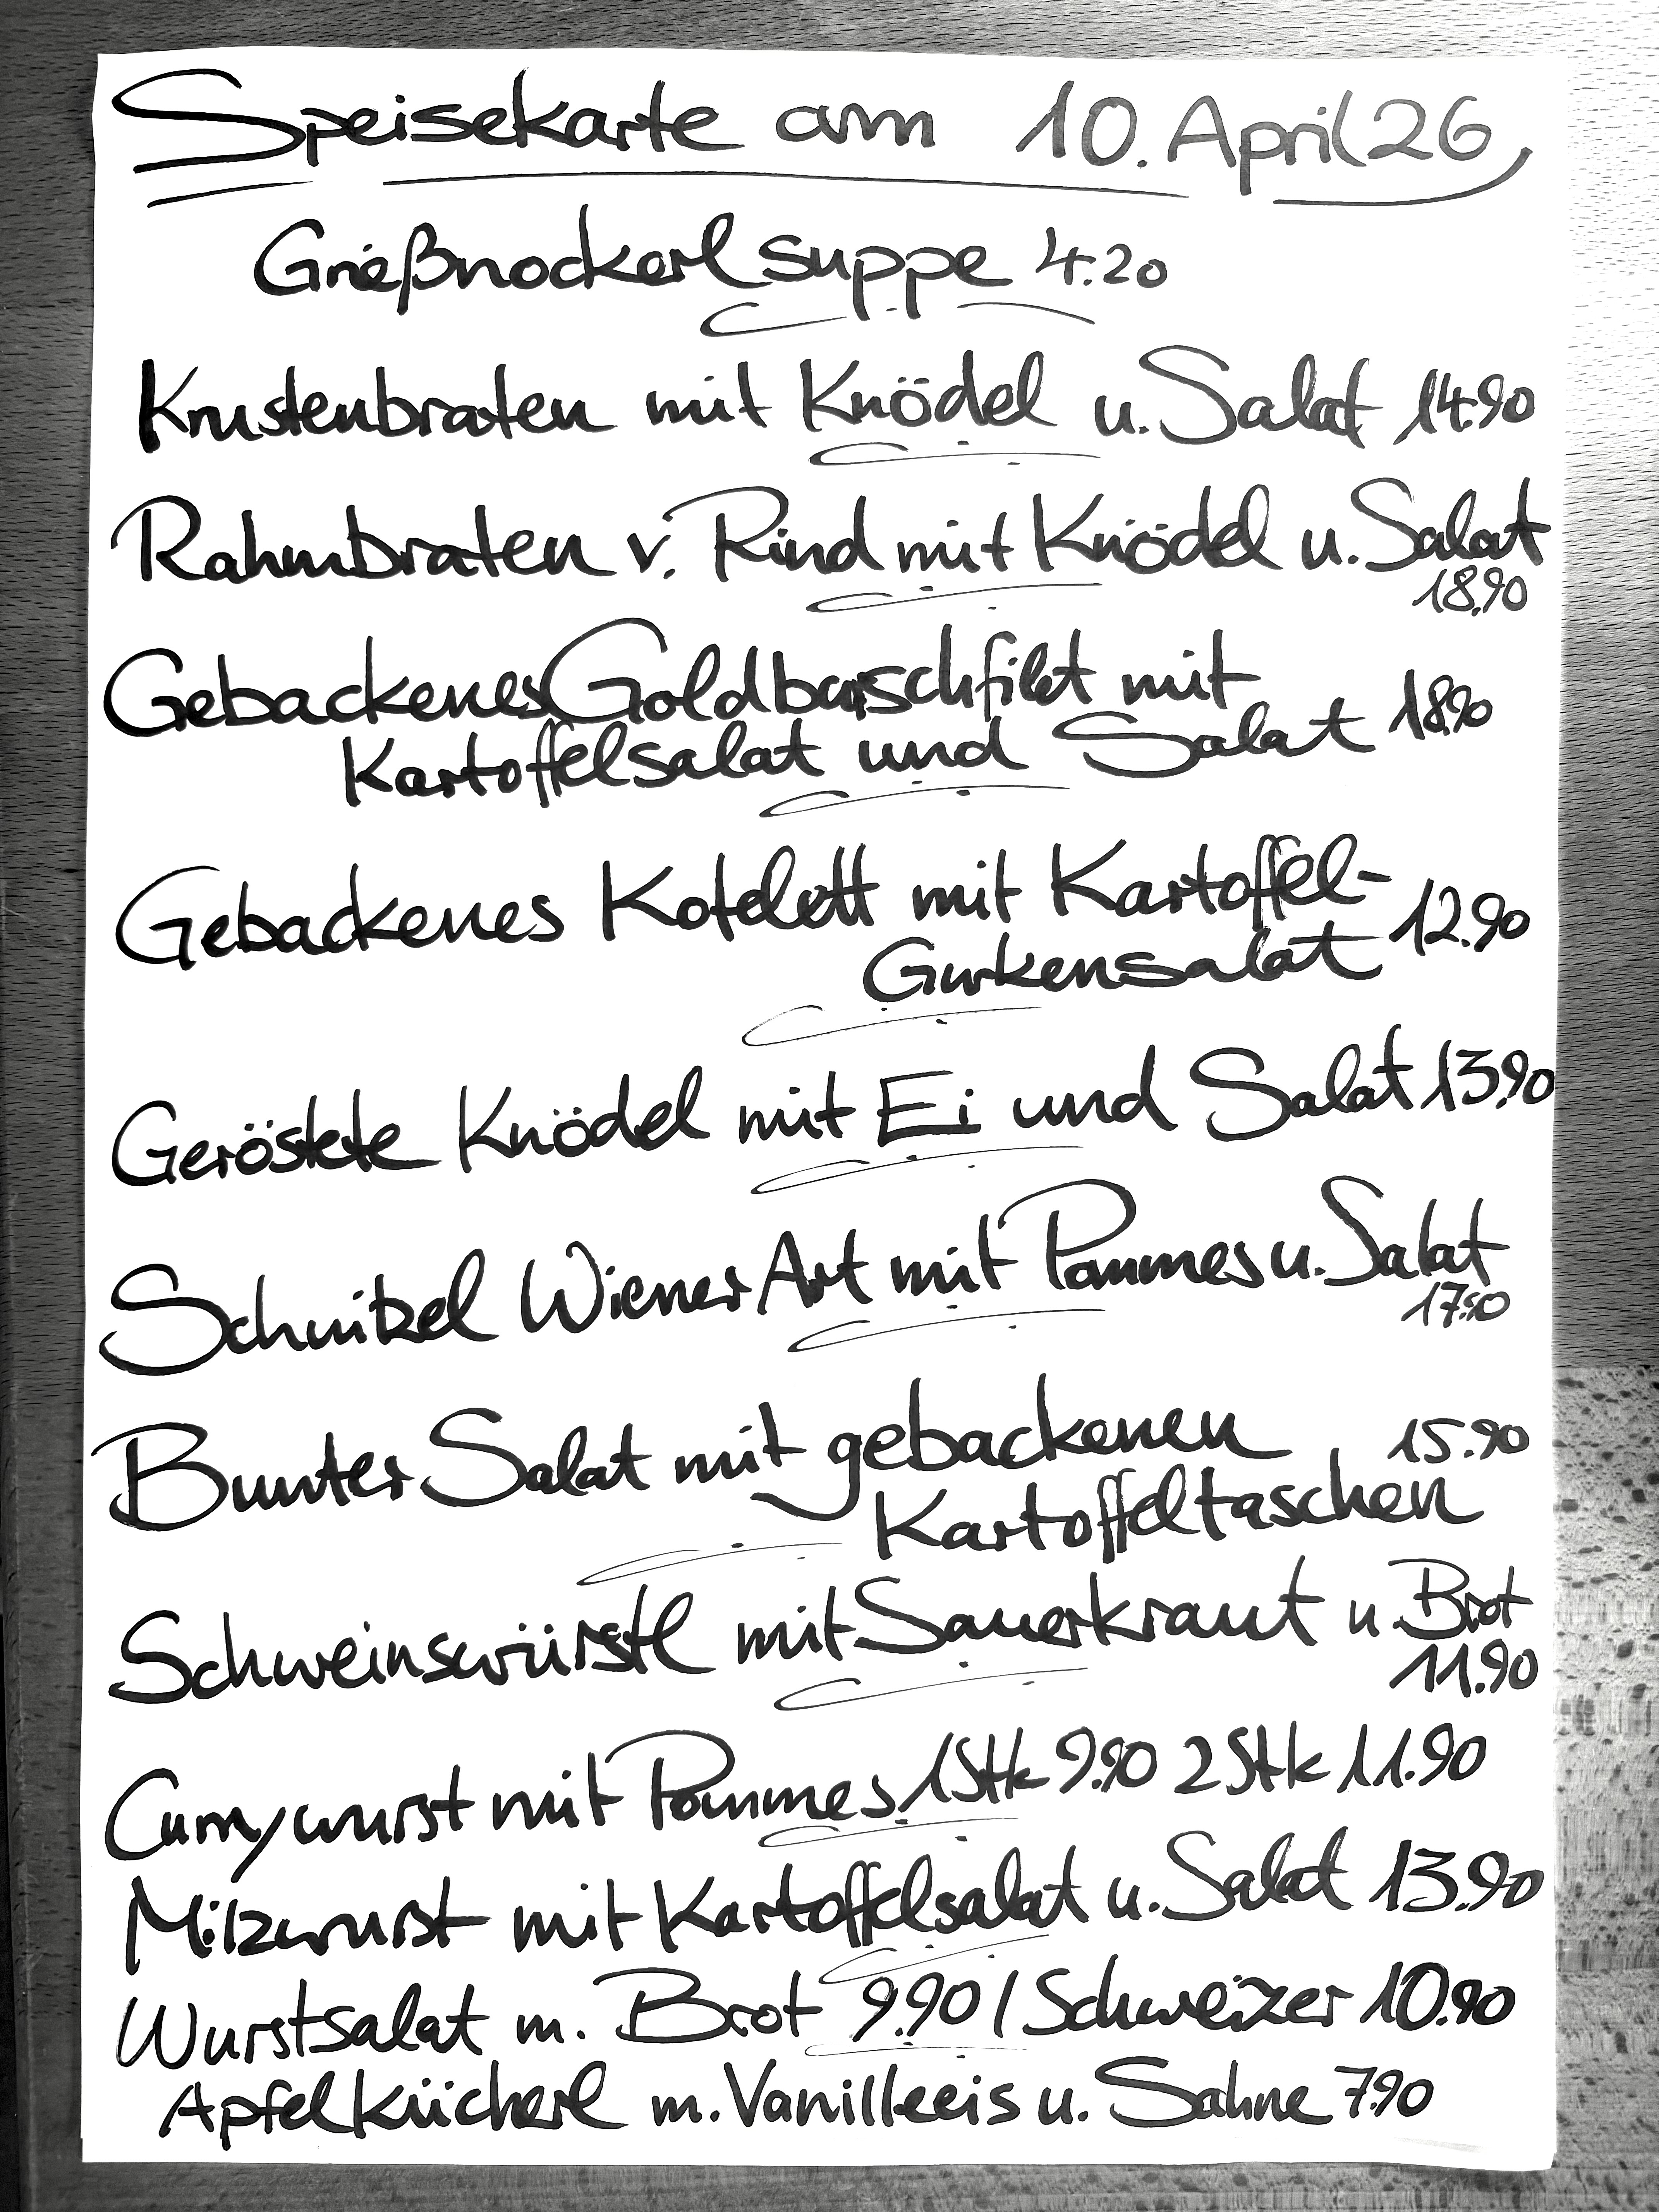 Speisekarte am 10. April 26
Grießnockerlsuppe 4.20
Krustenbraten mit Knödel u. Salat 14.90
Rahmbraten v. Rind mit Knödel u. Salat
18.90
Gebackenes Goldbarschfilet mit
Kartoffelsalat und Salat 18.90
Gebackenes Kotelett mit Kartoffel-
Gurkensalat 12.90
Geröstete Knödel mit Ei und Salat 13.90
Schnitzel Wiener Art mit Pommes u. Salat
Bunter Salat mit gebackenen 15.90
Kartoffeltaschen
Schweinswürstl mit Sauerkraut u. Brot
11.90
Currywurst mit Pommes 1 Stk 9.90 2 Stk 11.90
Milzwurst mit Kartoffelsalat u. Salat 13.90
Wurstsalat m. Brot 9.90 / Schweizer 10.90
Apfelkücherl m. Vanilleeis u. Sahne 7.90